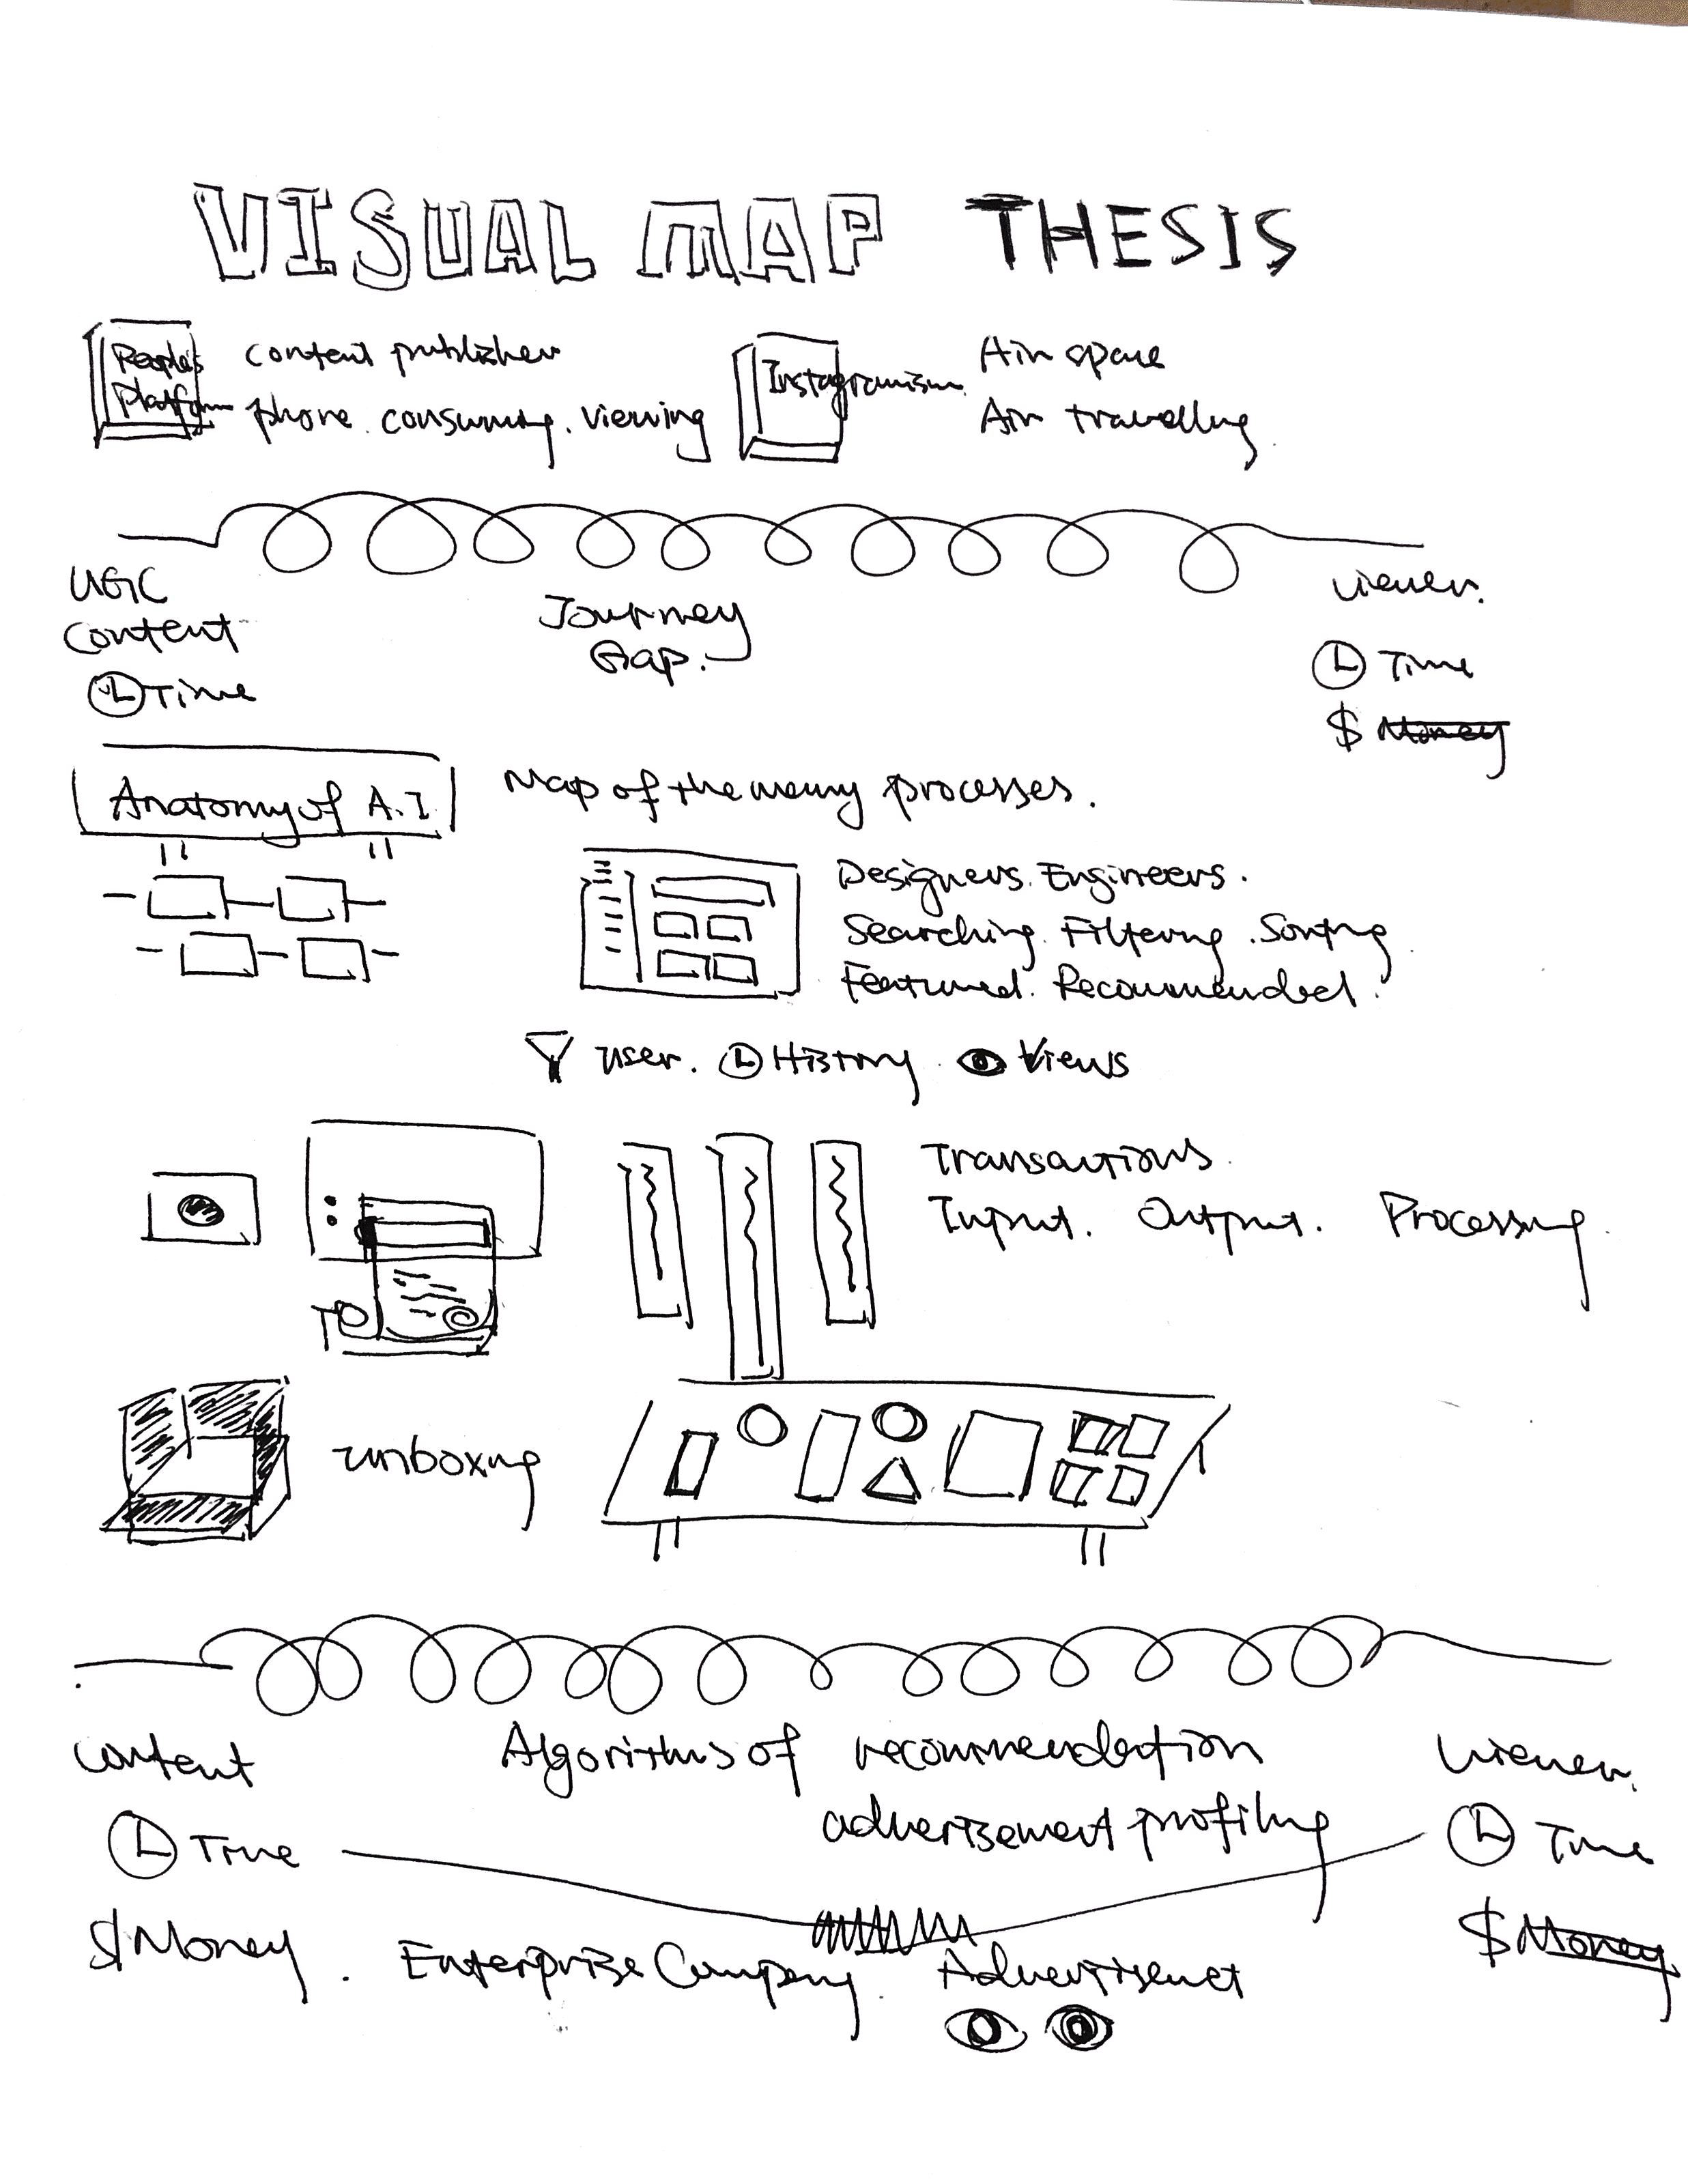 VISUAL MAP THESIS
People's Platform
content publisher
phone. consuming. viewing
Instagramism.
Air space
Air travelling.
UGC
Content
Time
Journey
Gap.
viewer.
Time
$ Money
Anatomy of A.I
Map of the many processes.
Designers. Engineers.
Searching. Filtering. Sorting
Featured. Recommended.
user. History. Views
Transactions.
Input. Output. Processing.
unboxing
content
Algorithms of recommendation
advertisement profiling
viewer.
Time
Time
$ Money. Enterprise Company. Advertisemet
$ Money